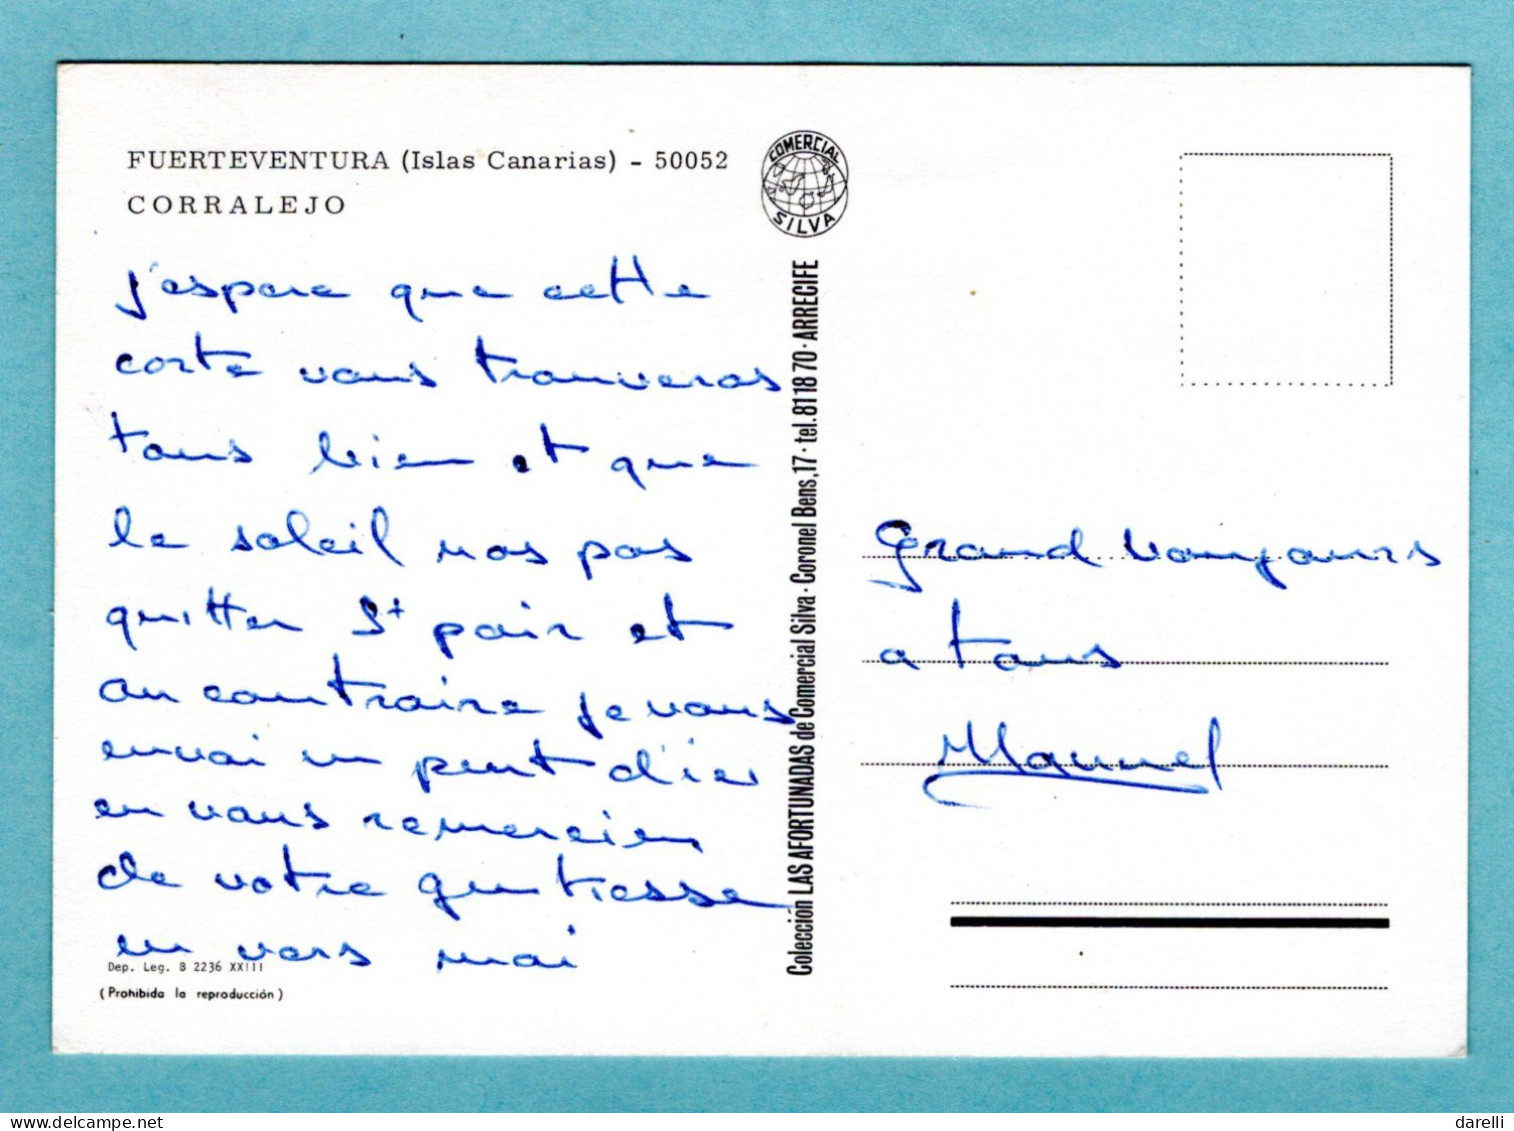 FUERTEVENTURA (Islas Canarias) - 50052
CORRALEJO
j'espere que cette
carte vous trouveras
tous bien et que
le soleil nas pas
quitter St pair et
au contraire je vous
envoi un peut d'ici
en vous remercien
de votre gentiesse
en vers moi
Dep. Leg. B 2236 XXIII
(Prohibida la reproducción)
COMERCIAL
SILVA
Colección LAS AFORTUNADAS de Comercial Silva · Coronel Bens, 17 · tel. 81 18 70 · ARRECIFE
Grand bonjours
a tous
Manuel
darelli